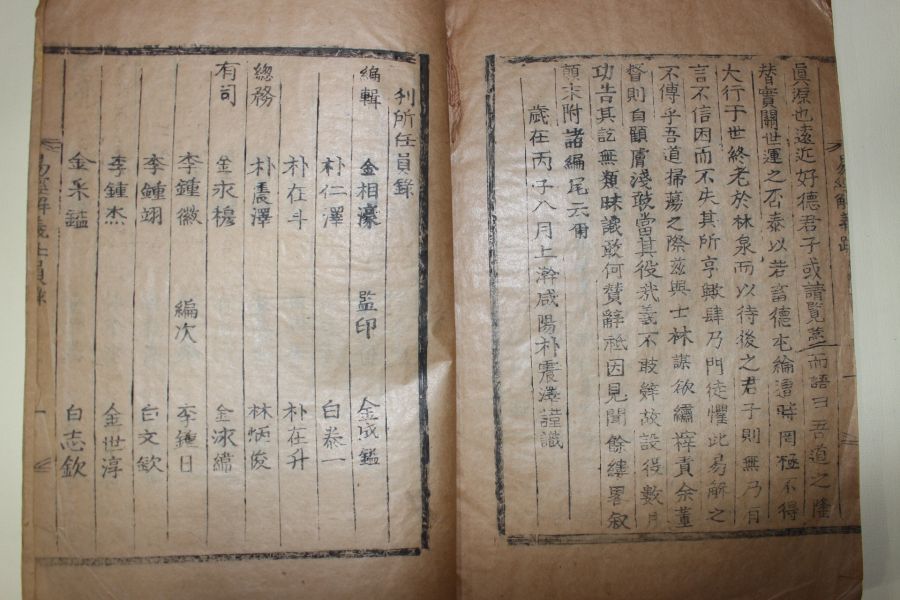 眞源也遠近好德君子或請覧蓋而語曰吾道之隆
替實關世運之否泰以若蓄德屯綸遭時罔極不得
大行于世終老於林泉而以待後之君子則無乃有
言不信因而不失其所亨歟肆乃門徒懼此易解之
不傳乎吾道掃蕩之際玆與士林謀欲繡梓責余董
督則自顧膚淺玻當其役哉義不敢辭故設役數月
功告其訖無類昧識敢何贊辭秪因見聞餘縷畧叙
顚末附諸編尾云爾
歲在丙子八月上澣咸陽朴震澤謹識
易經解義跋
刊所任員錄
編輯 金相濠 監印 金成鎰
朴仁澤 白泰一
朴在斗 朴在升
總務 朴震澤 林炳俊
有司 金永穆 金永綿
李鍾徽 編次 李鍾日
李鍾翊 白文欽
李鍾杰 金世淳
金采鎰 白志欽
易經解義任員錄 一